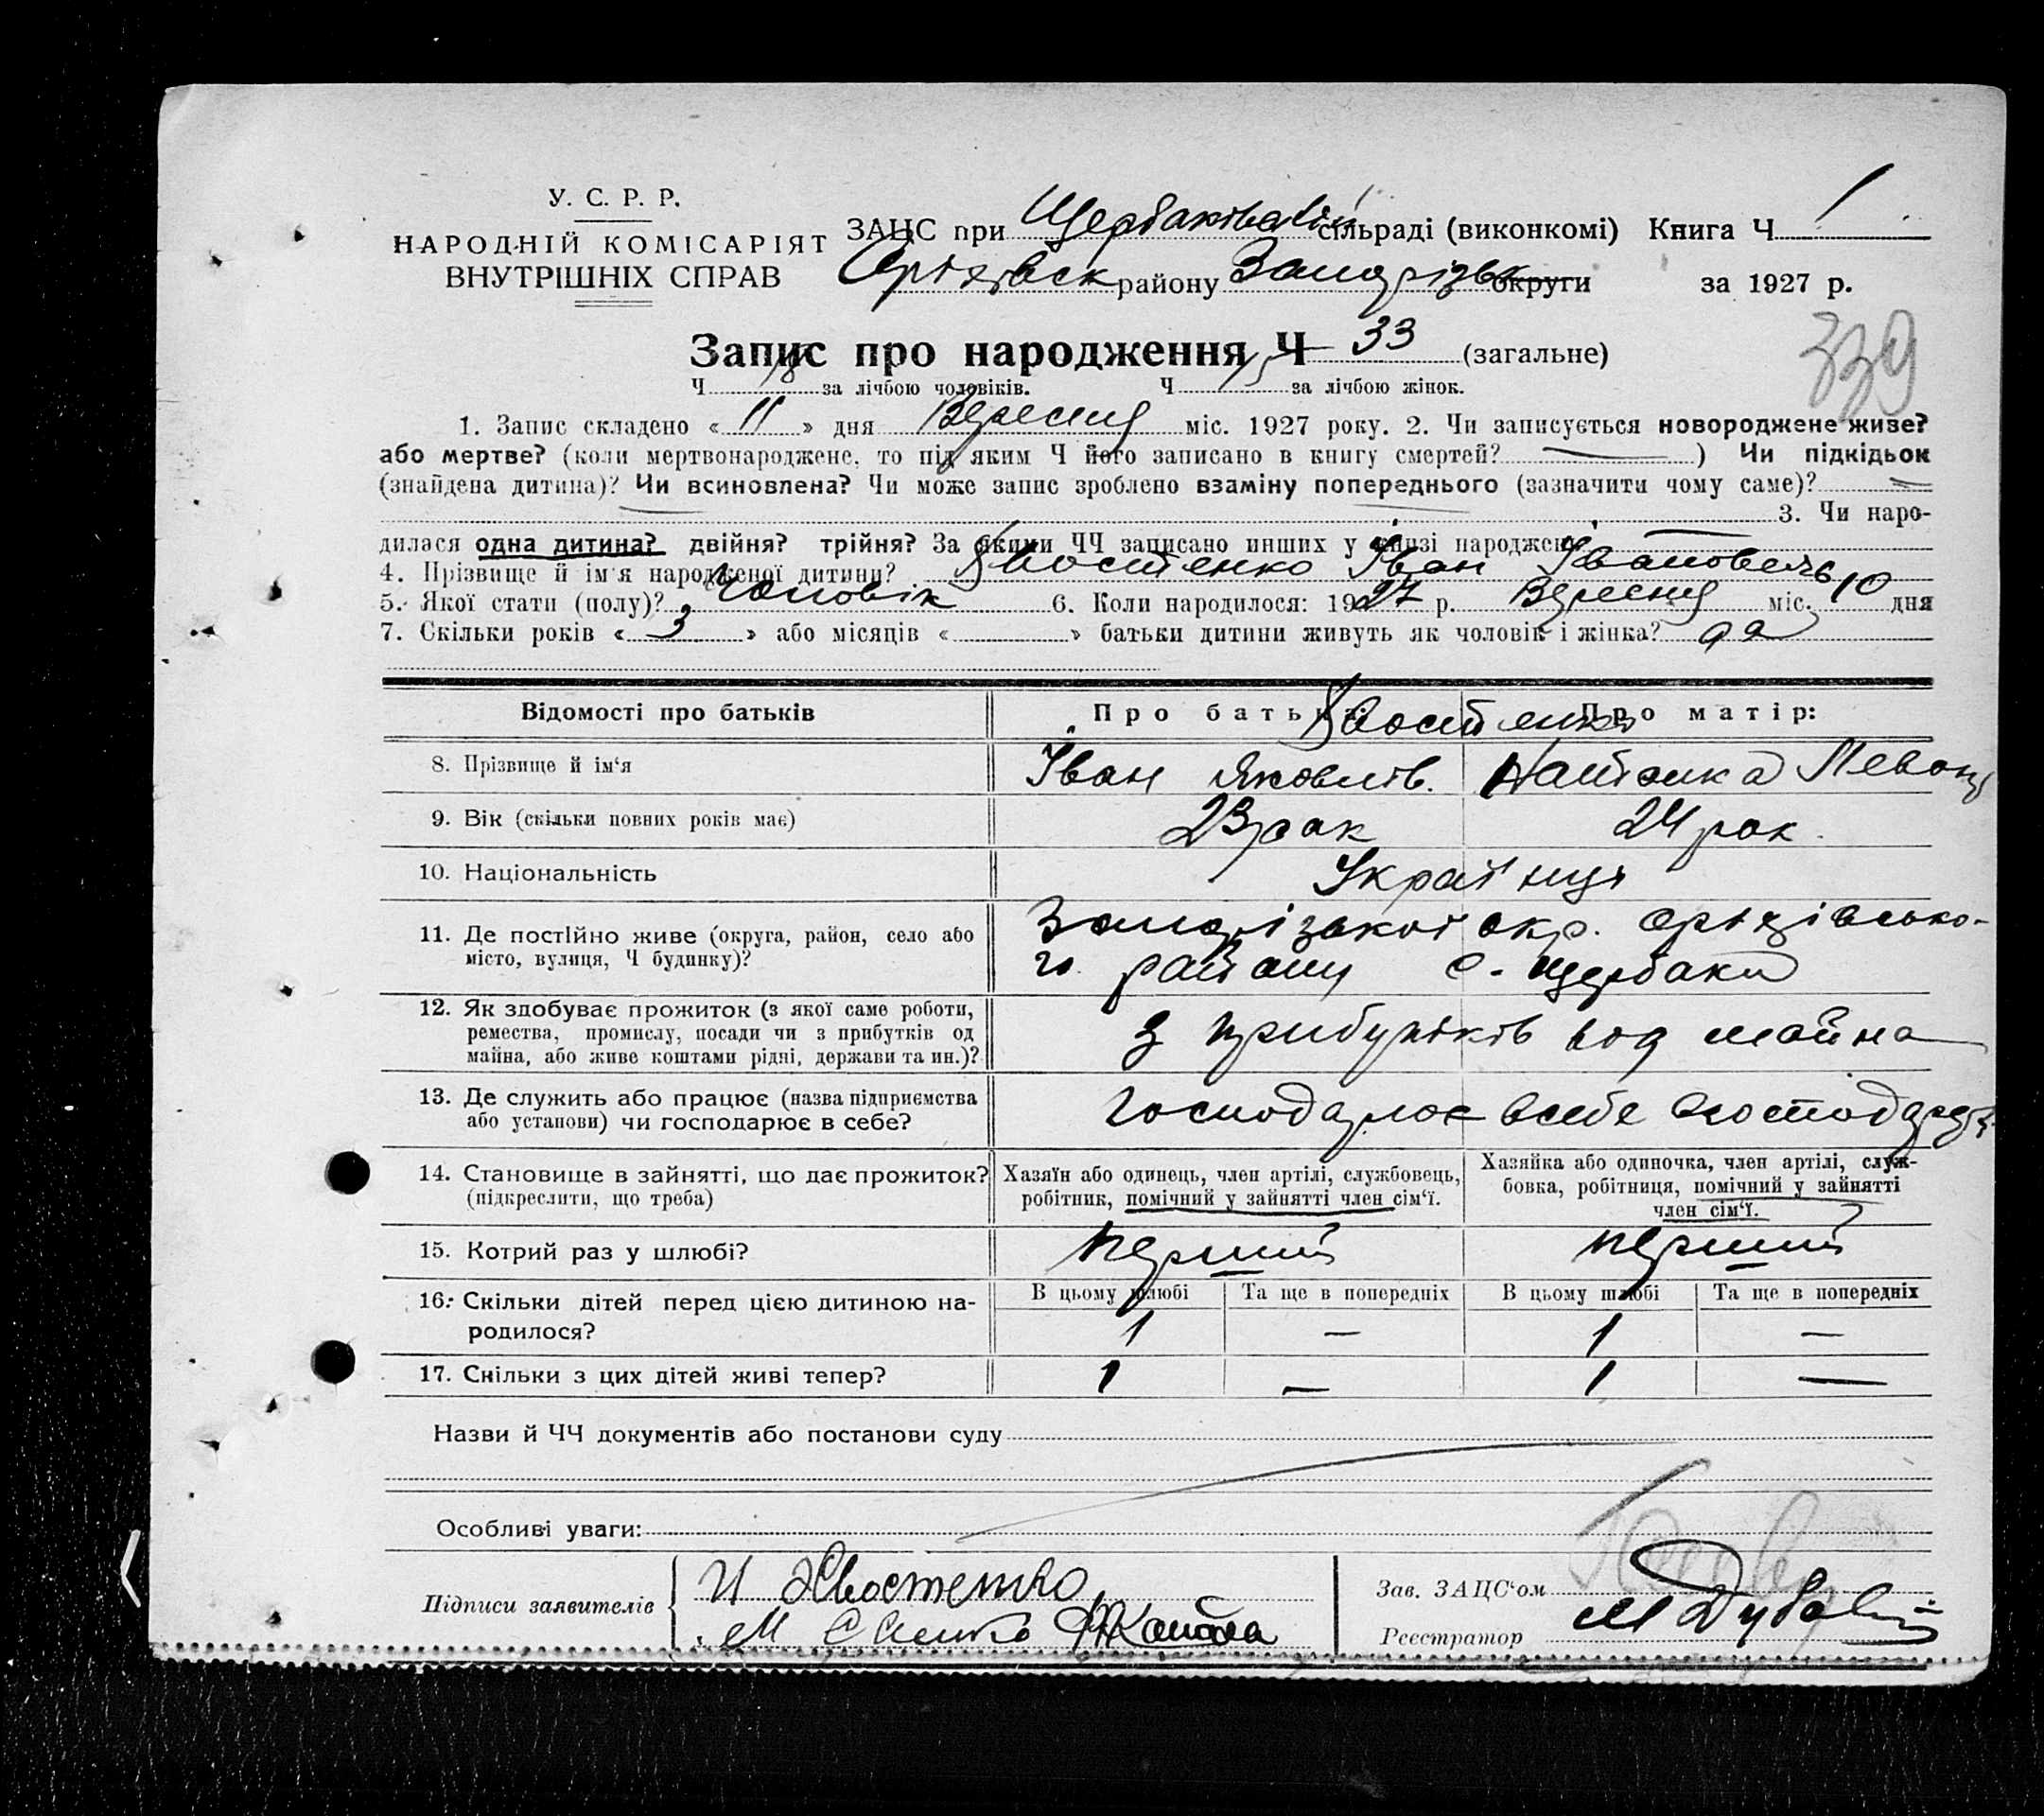 У. С. Р. Р.
НАРОДНІЙ КОМІСАРІЯТ
ВНУТРІШНІХ СПРАВ
ЗАЦС при Щербаківській сільраді (виконкомі) Книга Ч 1
району Запорізьк округи за 1927 р.
Запис про народження Ч 33 (загальне)
339
Ч 18 за лічбою чоловіків. Ч 15 за лічбою жінок.
1. Запис складено « 11 » дня Вересня міс. 1927 року. 2. Чи записується новороджене живе?
або мертве? (коли мертвонароджене, то під яким Ч його записано в книгу смертей? — ) Чи підкідьок
(знайдена дитина)? Чи всиновлена? Чи може запис зроблено взаміну попереднього (зазначити чому саме)? —
3. Чи наро-
дилася одна дитина? двійня? трійня? За якими ЧЧ записано инших у книзі народжень —
4. Прізвище й ім'я народженої дитини? Хвостенко Іван Іванович
5. Якої стати (полу)? Чоловік 6. Коли народилося: 1927 р. Вересня міс. 10 дня
7. Скільки років « 3 » або місяців « » батьки дитини живуть як чоловік і жінка? да
Відомості про батьків Про батька: Про матір:
Хвостенко
8. Прізвище й ім'я Іван Яковлів.
9. Вік (скільки повних років має) 23 рок 24 рок.
10. Національність Українця
11. Де постійно живе (округа, район, село або Запорізької окр. Оріхівсько-
місто, вулиця, Ч будинку)? го району с. Щербаки
12. Як здобуває прожиток (з якої саме роботи,
ремества, промислу, посади чи з прибутків од з прибутків від майна
майна, або живе коштами рідні, держави та ин.)?
13. Де служить або працює (назва підприємства господарює в себе
або установи) чи господарює в себе?
14. Становище в зайнятті, що дає прожиток? Хазяїн або одинець, член артілі, службовець, Хазяйка або одиночка, член артілі, служ-
(підкреслити, що треба) робітник, помічний у зайнятті член сім'ї. бовка, робітниця, помічний у зайнятті
член сім'ї.
15. Котрий раз у шлюбі? перший перший
16. Скільки дітей перед цією дитиною на- В цьому шлюбі Та ще в попередніх В цьому шлюбі Та ще в попередніх
родилося? 1 — 1 —
17. Скільки з цих дітей живі тепер? 1 — 1 —
Назви й ЧЧ документів або постанови суду
Особливі уваги:
Підписи заявителів И Хвостенко
Зав. ЗАЦС'ом
Реєстратор